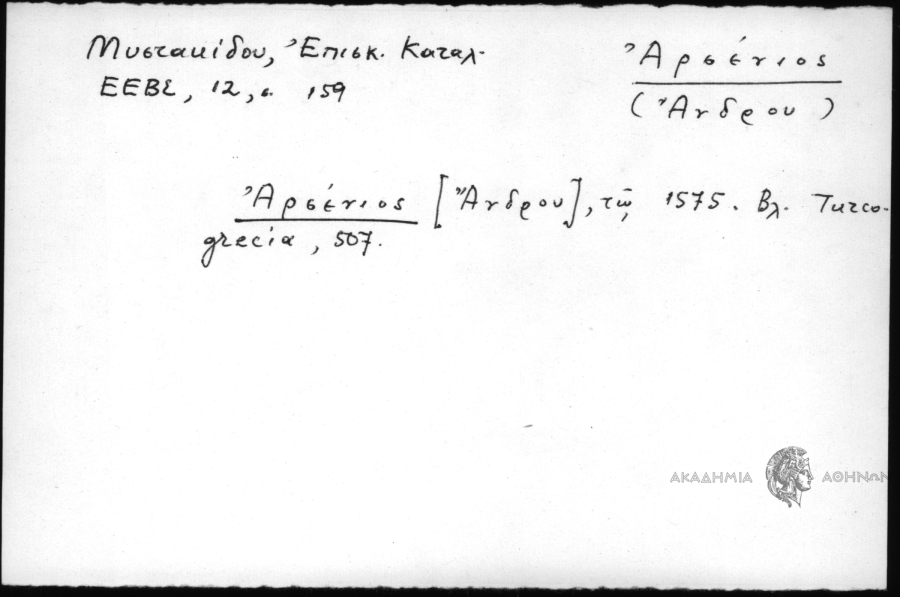 Μυστακίδου, Ἐπισκ. Καταλ.
ΕΕΒΣ, 12, σ. 159
Ἀρσένιος
(Ἄνδρου)
Ἀρσένιος [Ἄνδρου], τῷ 1575. Βλ. Turco-
grecia, 507.
ΑΚΑΔΗΜΙΑ ΑΘΗΝΩΝ